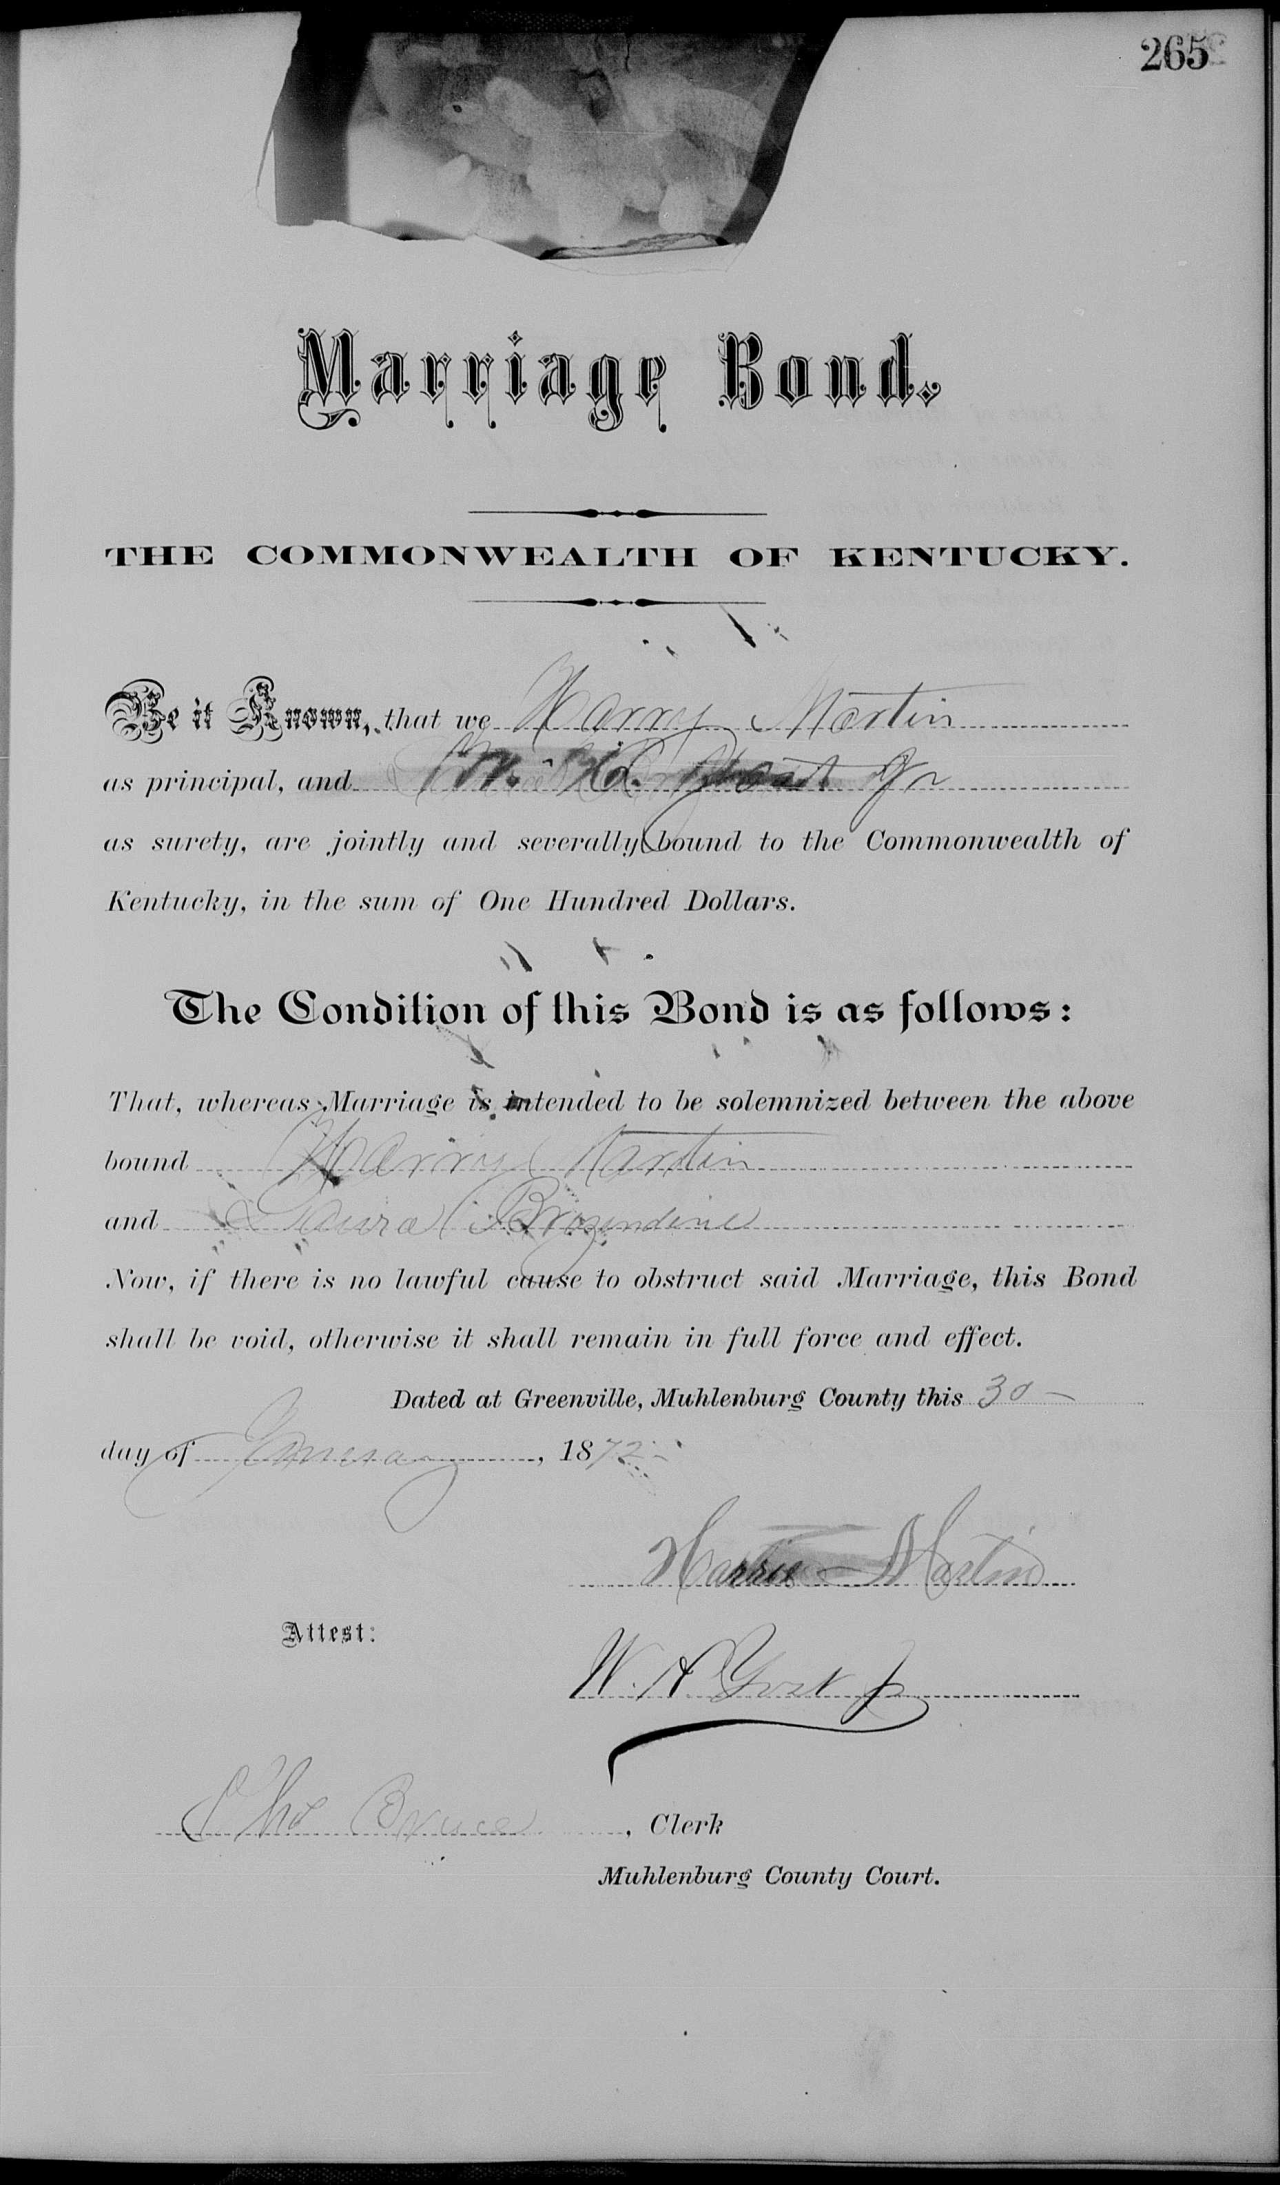 265
Marriage Bond.
THE COMMONWEALTH OF KENTUCKY.
Be it Known, that we Harry Martin
as principal, and Wm. H. Yost Jr
as surety, are jointly and severally bound to the Commonwealth of
Kentucky, in the sum of One Hundred Dollars.
The Condition of this Bond is as follows:
That, whereas Marriage is intended to be solemnized between the above
bound Harry Martin
and Laura Brizendine
Now, if there is no lawful cause to obstruct said Marriage, this Bond
shall be void, otherwise it shall remain in full force and effect.
Dated at Greenville, Muhlenburg County this 30
day of , 1872
Harrie Martin
Attest:
W. H. Yost Jr
Bruce , Clerk
Muhlenburg County Court.